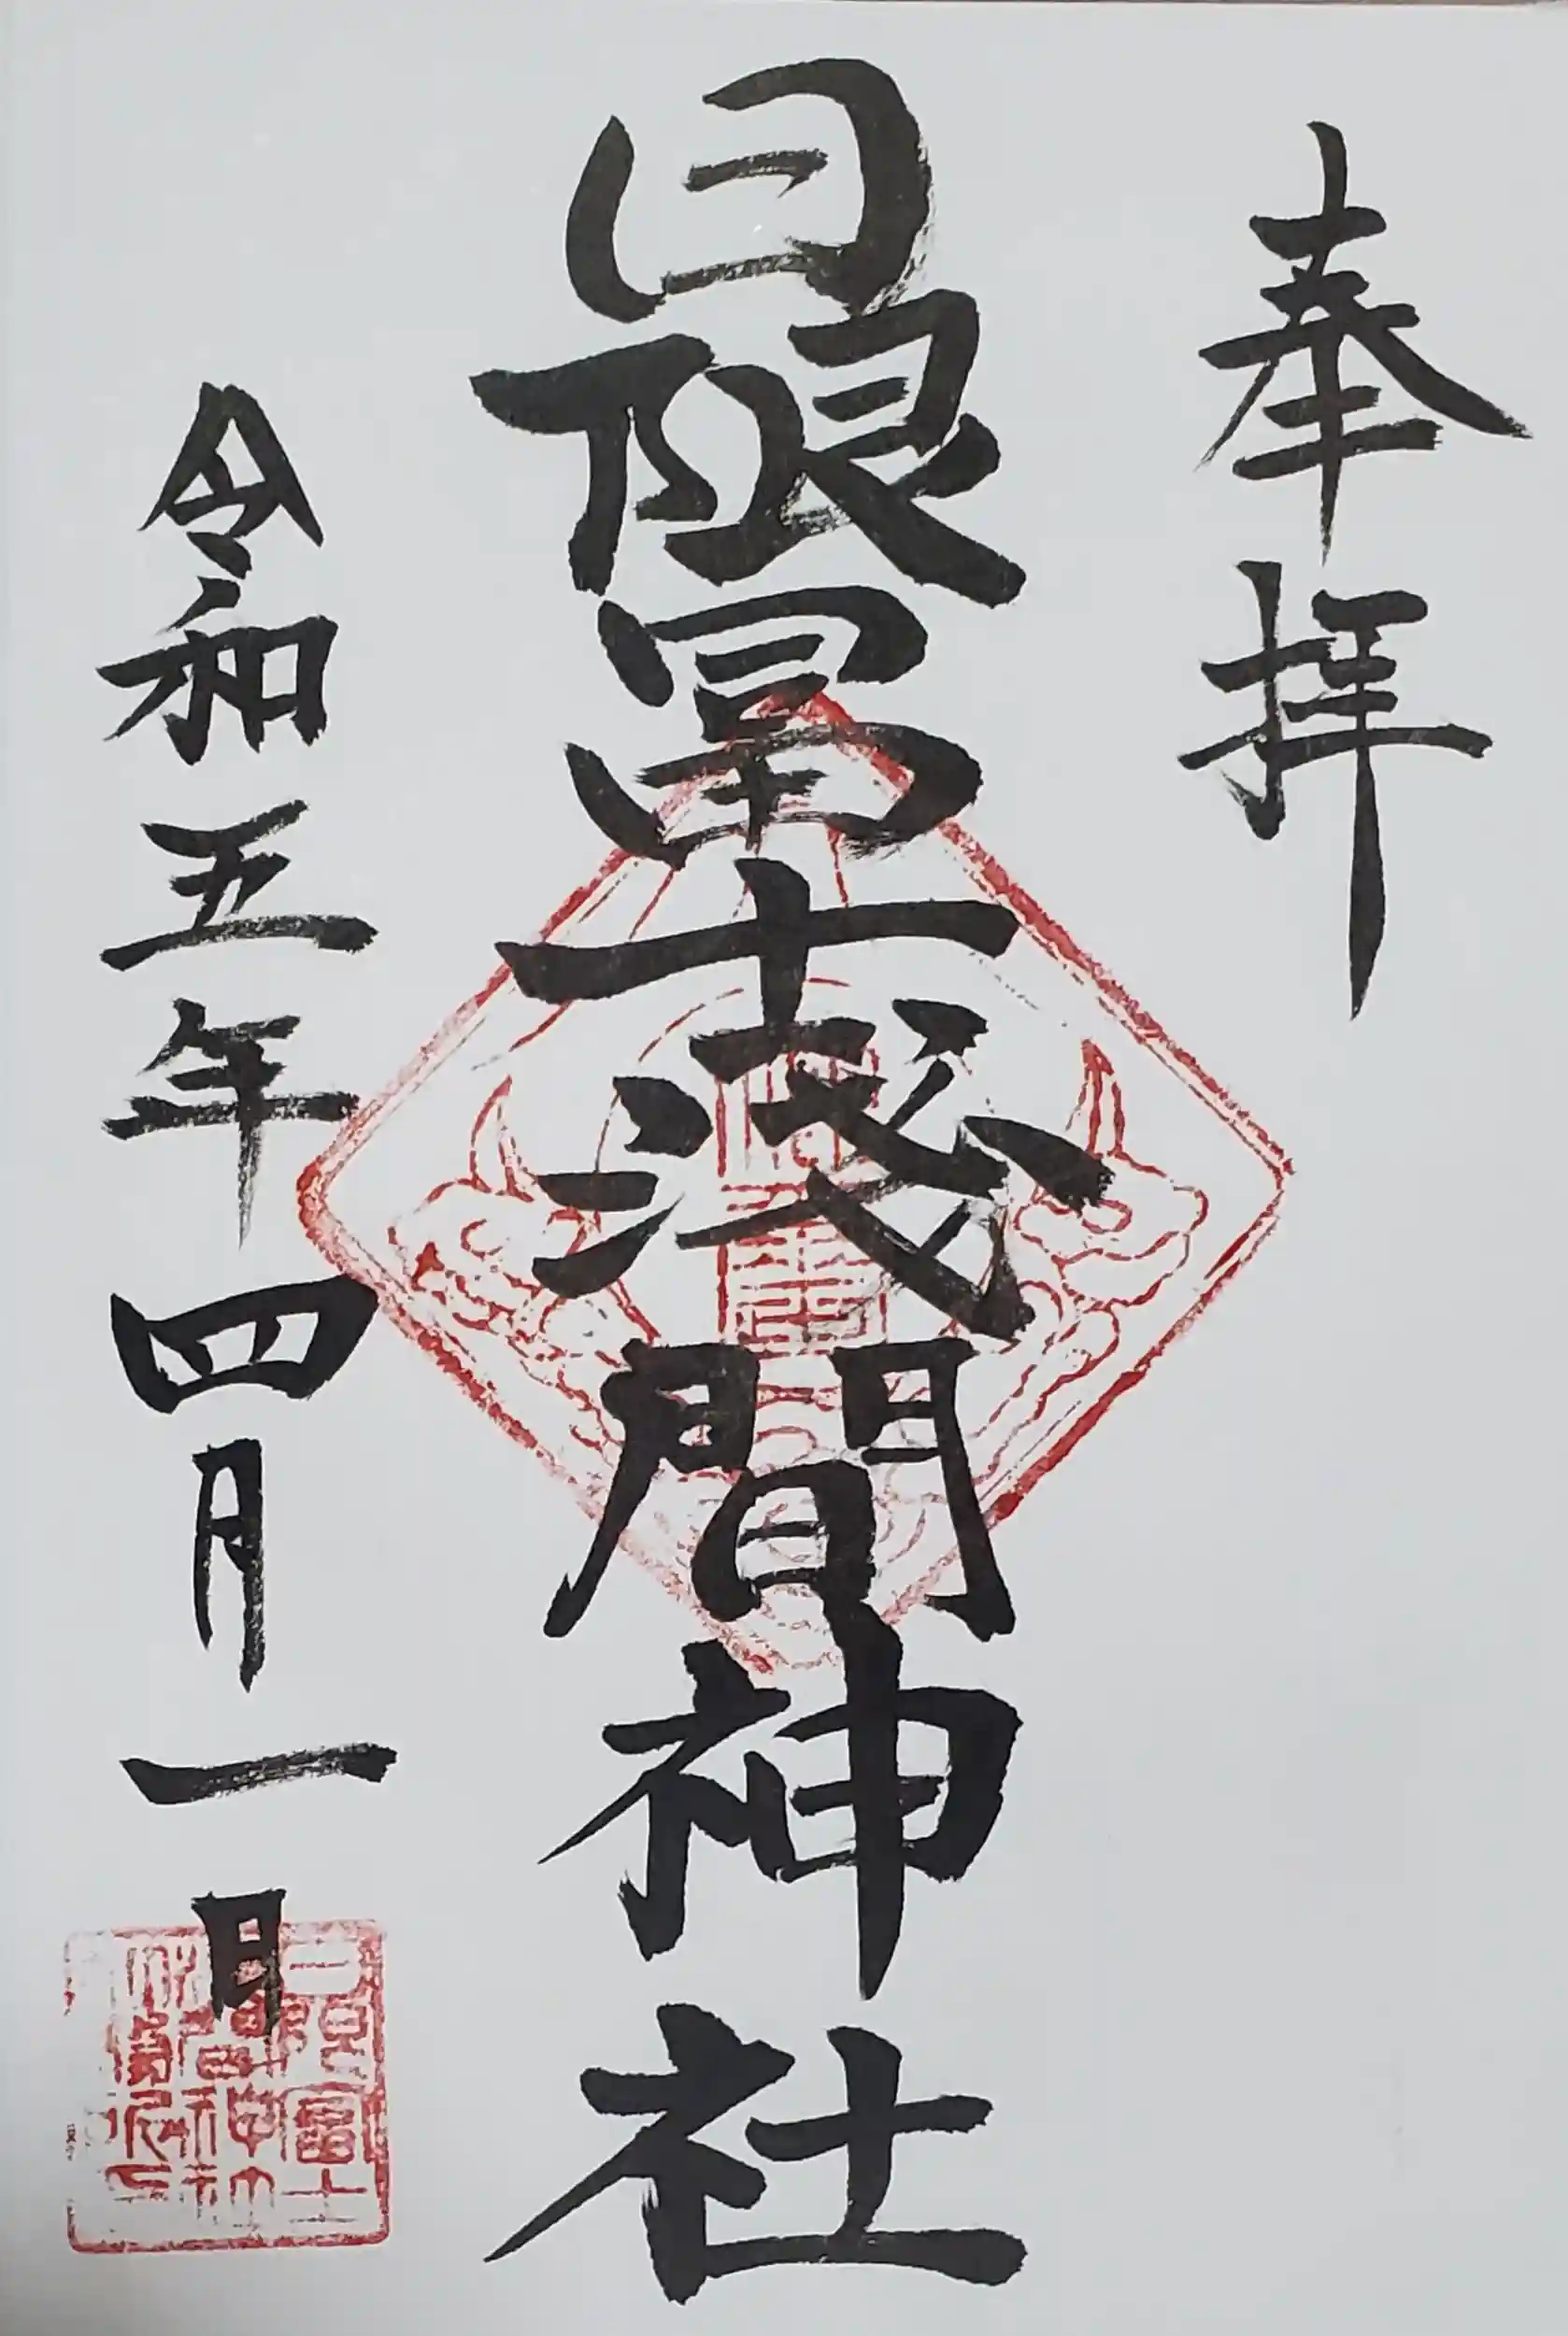 奉拝
日限富士浅間神社
令和五年四月一日